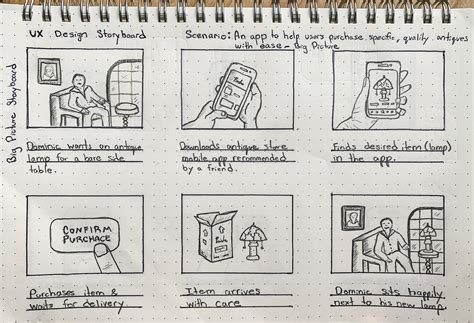 UX Design Storyboard
Scenario: An app to help users purchase specific, quality antiques
with ease - Big Picture
Big Picture Storyboard
Dominic wants an antique
lamp for a bare side
table.
Downloads antique store
mobile app recommended
by a friend.
Finds desired item (lamp)
in the app.
CONFIRM
PURCHACE
Purchases item &
waits for delivery.
Item arrives
with care
Dominic sits happily
next to his new lamp